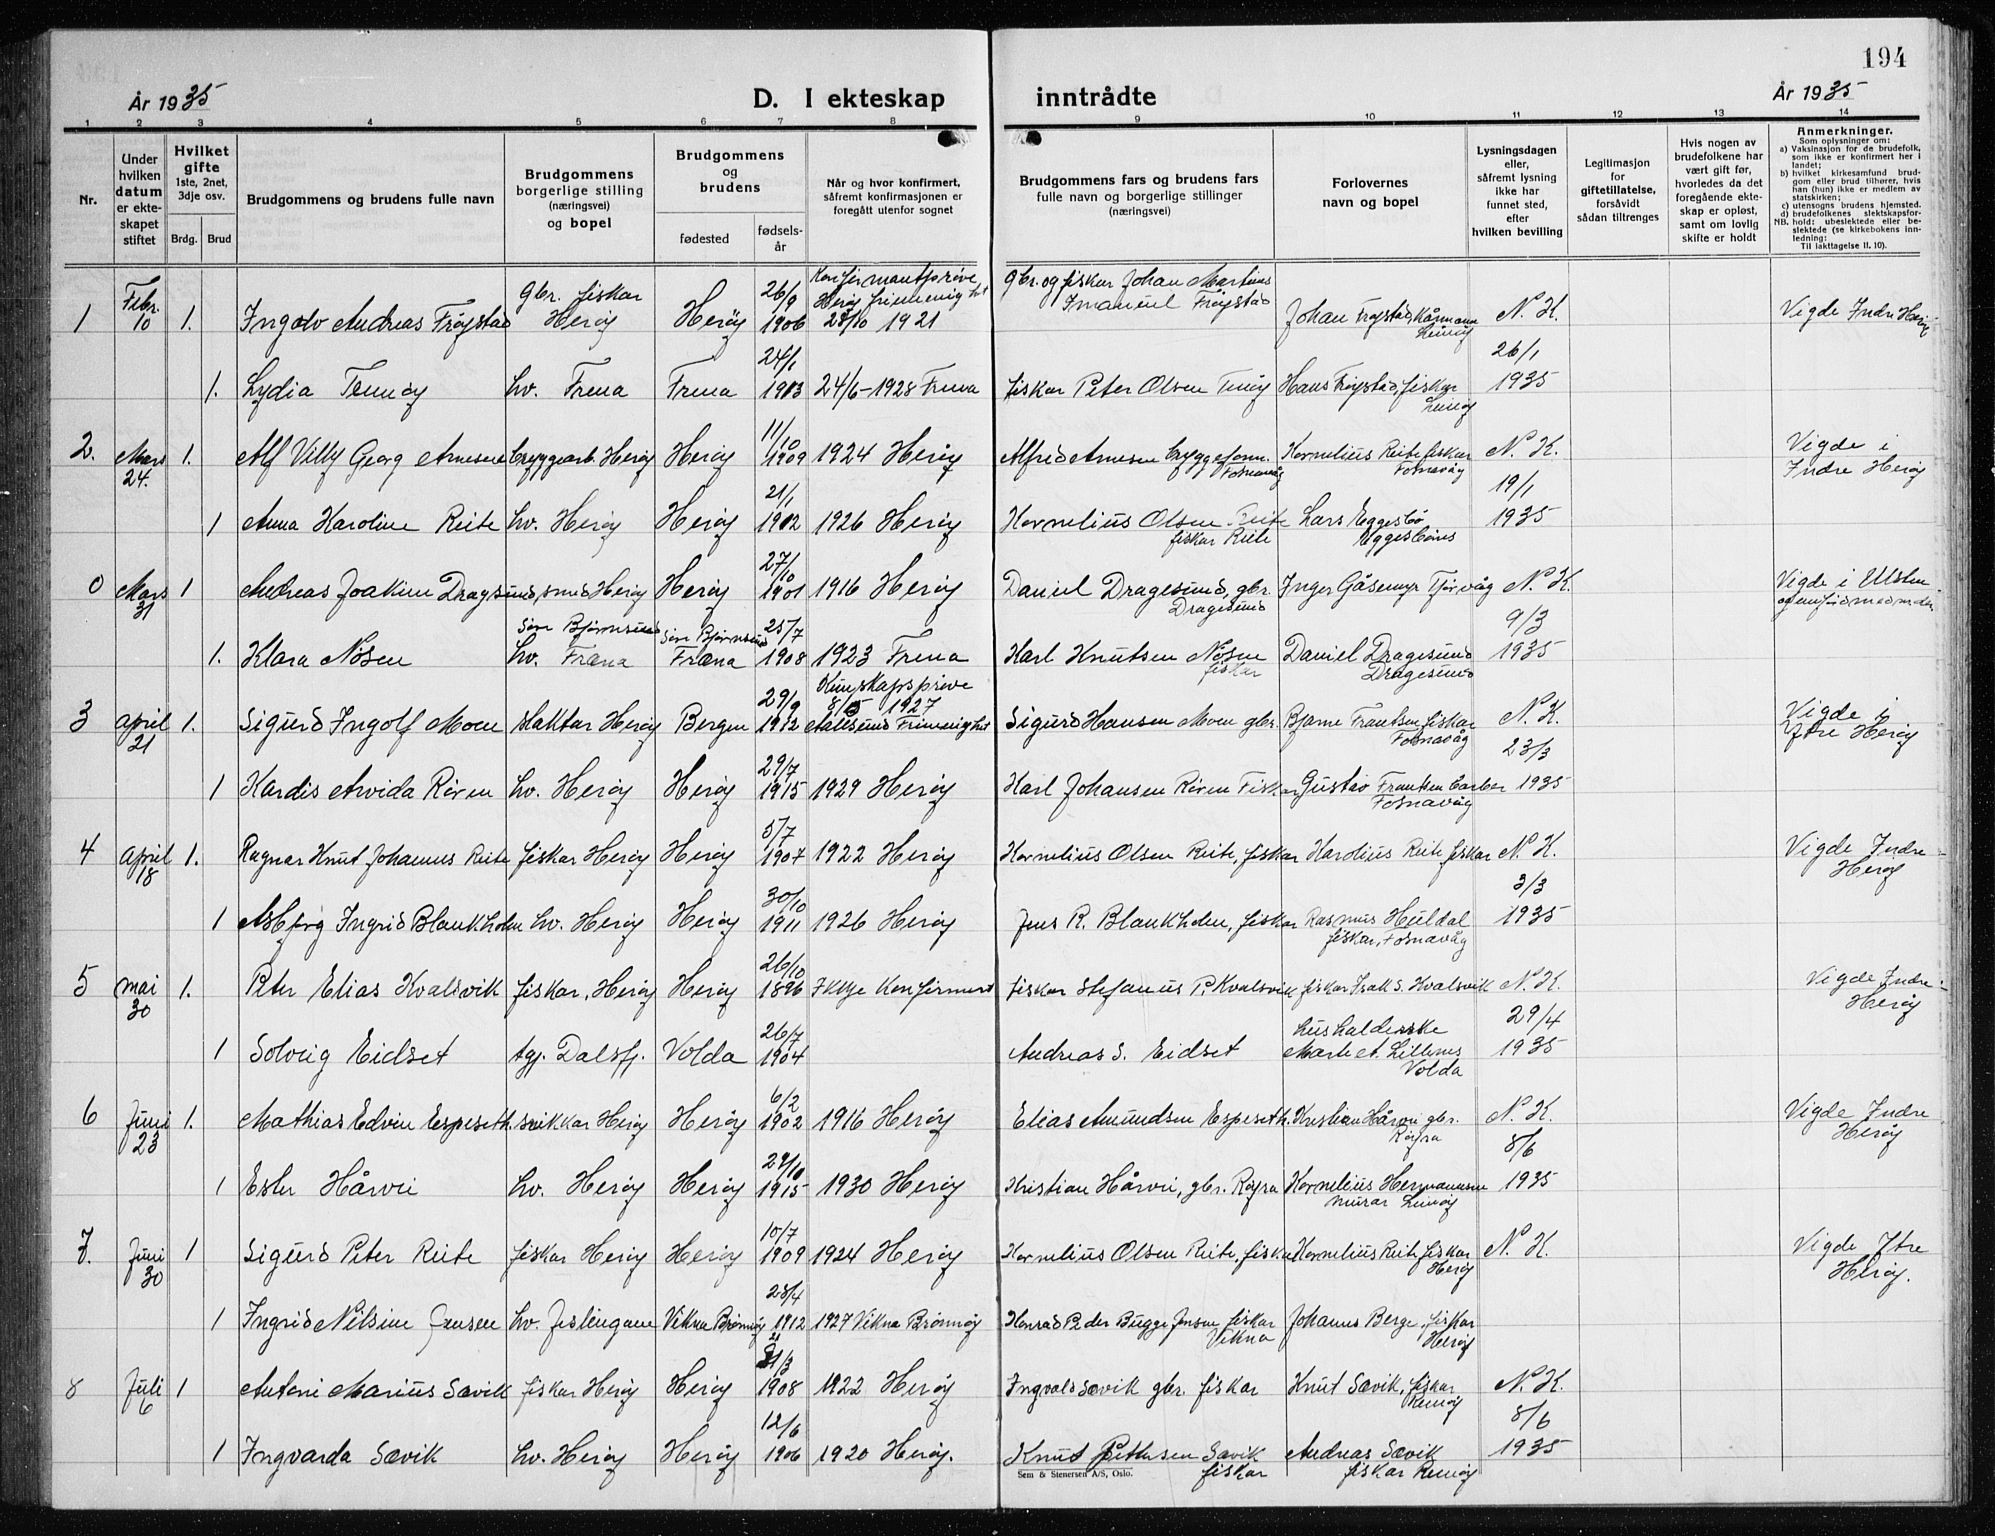 194
År 1935
D. I ekteskap inntrådte
År 1935
1 2 3 4 5 6 7 8 9 10 11 12 13 14
Nr.
Under hvilken datum er ekteskapet stiftet
Hvilket gifte 1ste, 2net, 3dje osv.
Brdg. Brud
Brudgommens og brudens fulle navn
Brudgommens borgerlige stilling (næringsvei) og bopel
Brudgommens og brudens
fødested
fødselsår
Når og hvor konfirmert, såfremt konfirmasjonen er foregått utenfor sognet
Brudgommens fars og brudens fars fulle navn og borgerlige stillinger (næringsvei)
Forlovernes navn og bopel
Lysningsdagen eller, såfremt lysning ikke har funnet sted, efter hvilken bevilling
Legitimasjon for giftetillatelse, forsåvidt sådan tiltrenges
Hvis nogen av brudefolkene har vært gift før, hvorledes da det foregående ekteskap er opløst, samt om lovlig skifte er holdt
Anmerkninger.
Som oplysninger om:
a) Vaksinasjon for de brudefolk, som ikke er konfirmert her i landet;
b) hvilket kirkesamfund brudgom eller brud tilhører, hvis han (hun) ikke er medlem av statskirken;
c) utensogns brudens hjemsted.
d) brudefolkenes slektskapsforhold: ubeslektede eller beslektede (se kirkebokens innledning:
NB. Til iakttagelse II. 10).
1 Febr. 10 1. Ingolv Andreas Frøystad gbr. fiskar Herøy Herøy 26/9 1906 Konfirmantprøve Herøy frimenighet 23/10 1921 gbr. og fiskar Johan Martinus Imanuel Frøystad Johan Frøystad, Leinøy N. K. Vigde Indre Herøy
1. Lydia Tennøy hv. Frena Frena 24/1 1903 24/6-1928 Frena fiskar Peter Olsen Hans Frøystad, fiskar Leinøy 26/1 1935
2. Mars 24. 1. Alf Villy Georg Arnesen bryggearb. Herøy Herøy 11/10 1909 1924 Herøy Alfred Arnesen bryggeform. Fosnavåg Kornelius Reite fiskar Fosnavåg N. K. Vigde i Indre Herøy
1 Anna Karoline Reite hv. Herøy Herøy 21/1 1912 1926 Herøy Kornelius Olsen Reite fiskar Reite Lars Eggesbø Eggesbønes 19/1 1935
0 Mars 31 1 Andreas Joakim Dragsund, smed Herøy Herøy 27/10 1901 1916 Herøy Daniel Dragesund, gbr. Dragesund Inger Gåsemyr Tjørvåg N. K. Vigde i Ulstein
1. Klara Nøsen Søre Bjørnsund hv. Fræna Søre Bjørnsund Fræna 25/7 1908 1923 Frena Karl Knutsen Nøsen fiskar Daniel Dragesund Dragesund 9/3 1935
3 april 21 1. Sigurd Ingolf Moen slaktar Herøy Bergen 29/9 1912 Kunskapsprøve 1927 Aalesund Frimenighet Sigurd Hansen Moen gbr. Bjarne Frantsen fiskar Fosnavåg N. K. Vigde i Ytre Herøy
1 Kardis Arvida Røren hv. Herøy Herøy 29/7 1915 1929 Herøy Karl Johansen Røren Fiskar Gustav Frantsen barber Fosnavåg 23/3 1935
4 april 18 1. Ragnar Knut Johannes Reite fiskar Herøy Herøy 5/7 1907 1922 Herøy Kornelius Olsen Reite, fiskar Karolius Reite fiskar N. K. Vigde Indre Herøy
1 Asbjørg Ingrid Blankholm hv. Herøy Herøy 30/10 1911 1926 Herøy Jens R. Blankholm, fiskar Rasmus Huldal fiskar, Fosnavåg 3/3 1935
5 mai 30 1. Peter Elias Kvalsvik fiskar, Herøy Herøy 26/10 1896 Ikkje konfirmert fiskar Stefanus P. Kvalsvik fiskar Isak S. Kvalsvik N. K. Vigde Indre Herøy
1 Solveig Eidset tgj. Dalsfj. Volda 26/7 1904 Andreas S. Eidset husholderske Marte A. Lillenes Volda 29/4 1935
6 Juni 23 1. Mathias Edvin Espeseth. snikkar Herøy Herøy 6/2 1902 1916 Herøy Elias Amundsen Espeseth. Kristian Håvri gbr. Røyra N. K. Vigde Indre Herøy
1 Ester Hårvri hv. Herøy Herøy 1915 1930 Herøy Kristian Hårvri, gbr. Røyra Kornelius Hermansen murar Leinøy 8/6 1935
7. Juni 30 1 Sigurd Peter Reite fiskar Herøy Herøy 10/7 1909 1924 Herøy Kornelius Olsen Reite, fiskar Kornelius Reite, fiskar Herøy N. K. Vigde Ytre Herøy.
1 Ingrid Nilsine Jensen hv. Vikna Brønnøy 28/4 1912 1927 Vikna Brønnøy Konrad Peder Bugge Jensen fiskar Vikna Johannes Berge, fiskar Herøy
8 Juli 6 1 Antoni Marius Sævik fiskar Herøy Herøy 21/3 1908 1922 Herøy Ingvald Sævik gbr. fiskar Knut Sævik, fiskar Remøy N. K.
1 Ingvarda Sævik hv. Herøy Herøy 12/6 1906 1920 Herøy. Knut Pettersen Sævik fiskar Andreas Sævik fiskar Remøy 8/6 1935
Sem & Stenersen A/S, Oslo.